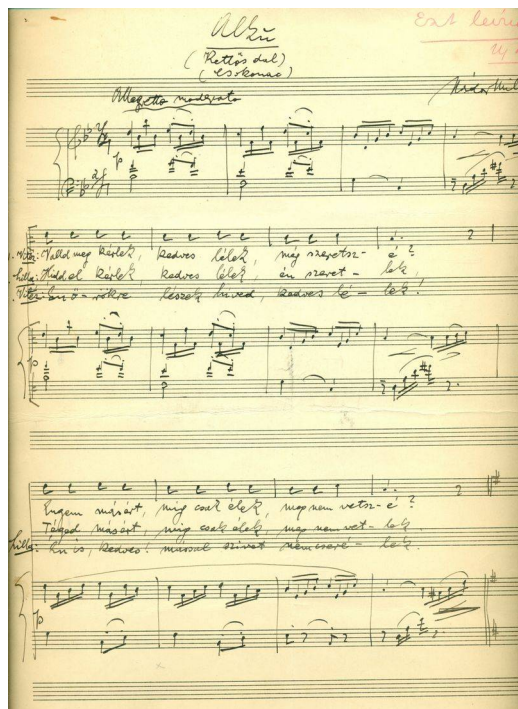 Alku
(Kettős dal)
(Csokonai)
Ezt leírni
Allegretto moderato
Nádor Mih
p
Vitéz: Valld meg kérlek, kedves lélek, még szeretsz-é?
Lilla: Hidd el kérlek kedves lélek, én szeret-lek,
Vitéz: örökre lészek hived, kedves lé-lek!
p
Engem másért, míg csak élek, meg nem vetsz-é?
Téged másért, míg csak élek, meg nem vet-lek
Lilla: Én is, kedves! mással szivet nem cseré-lek.
p